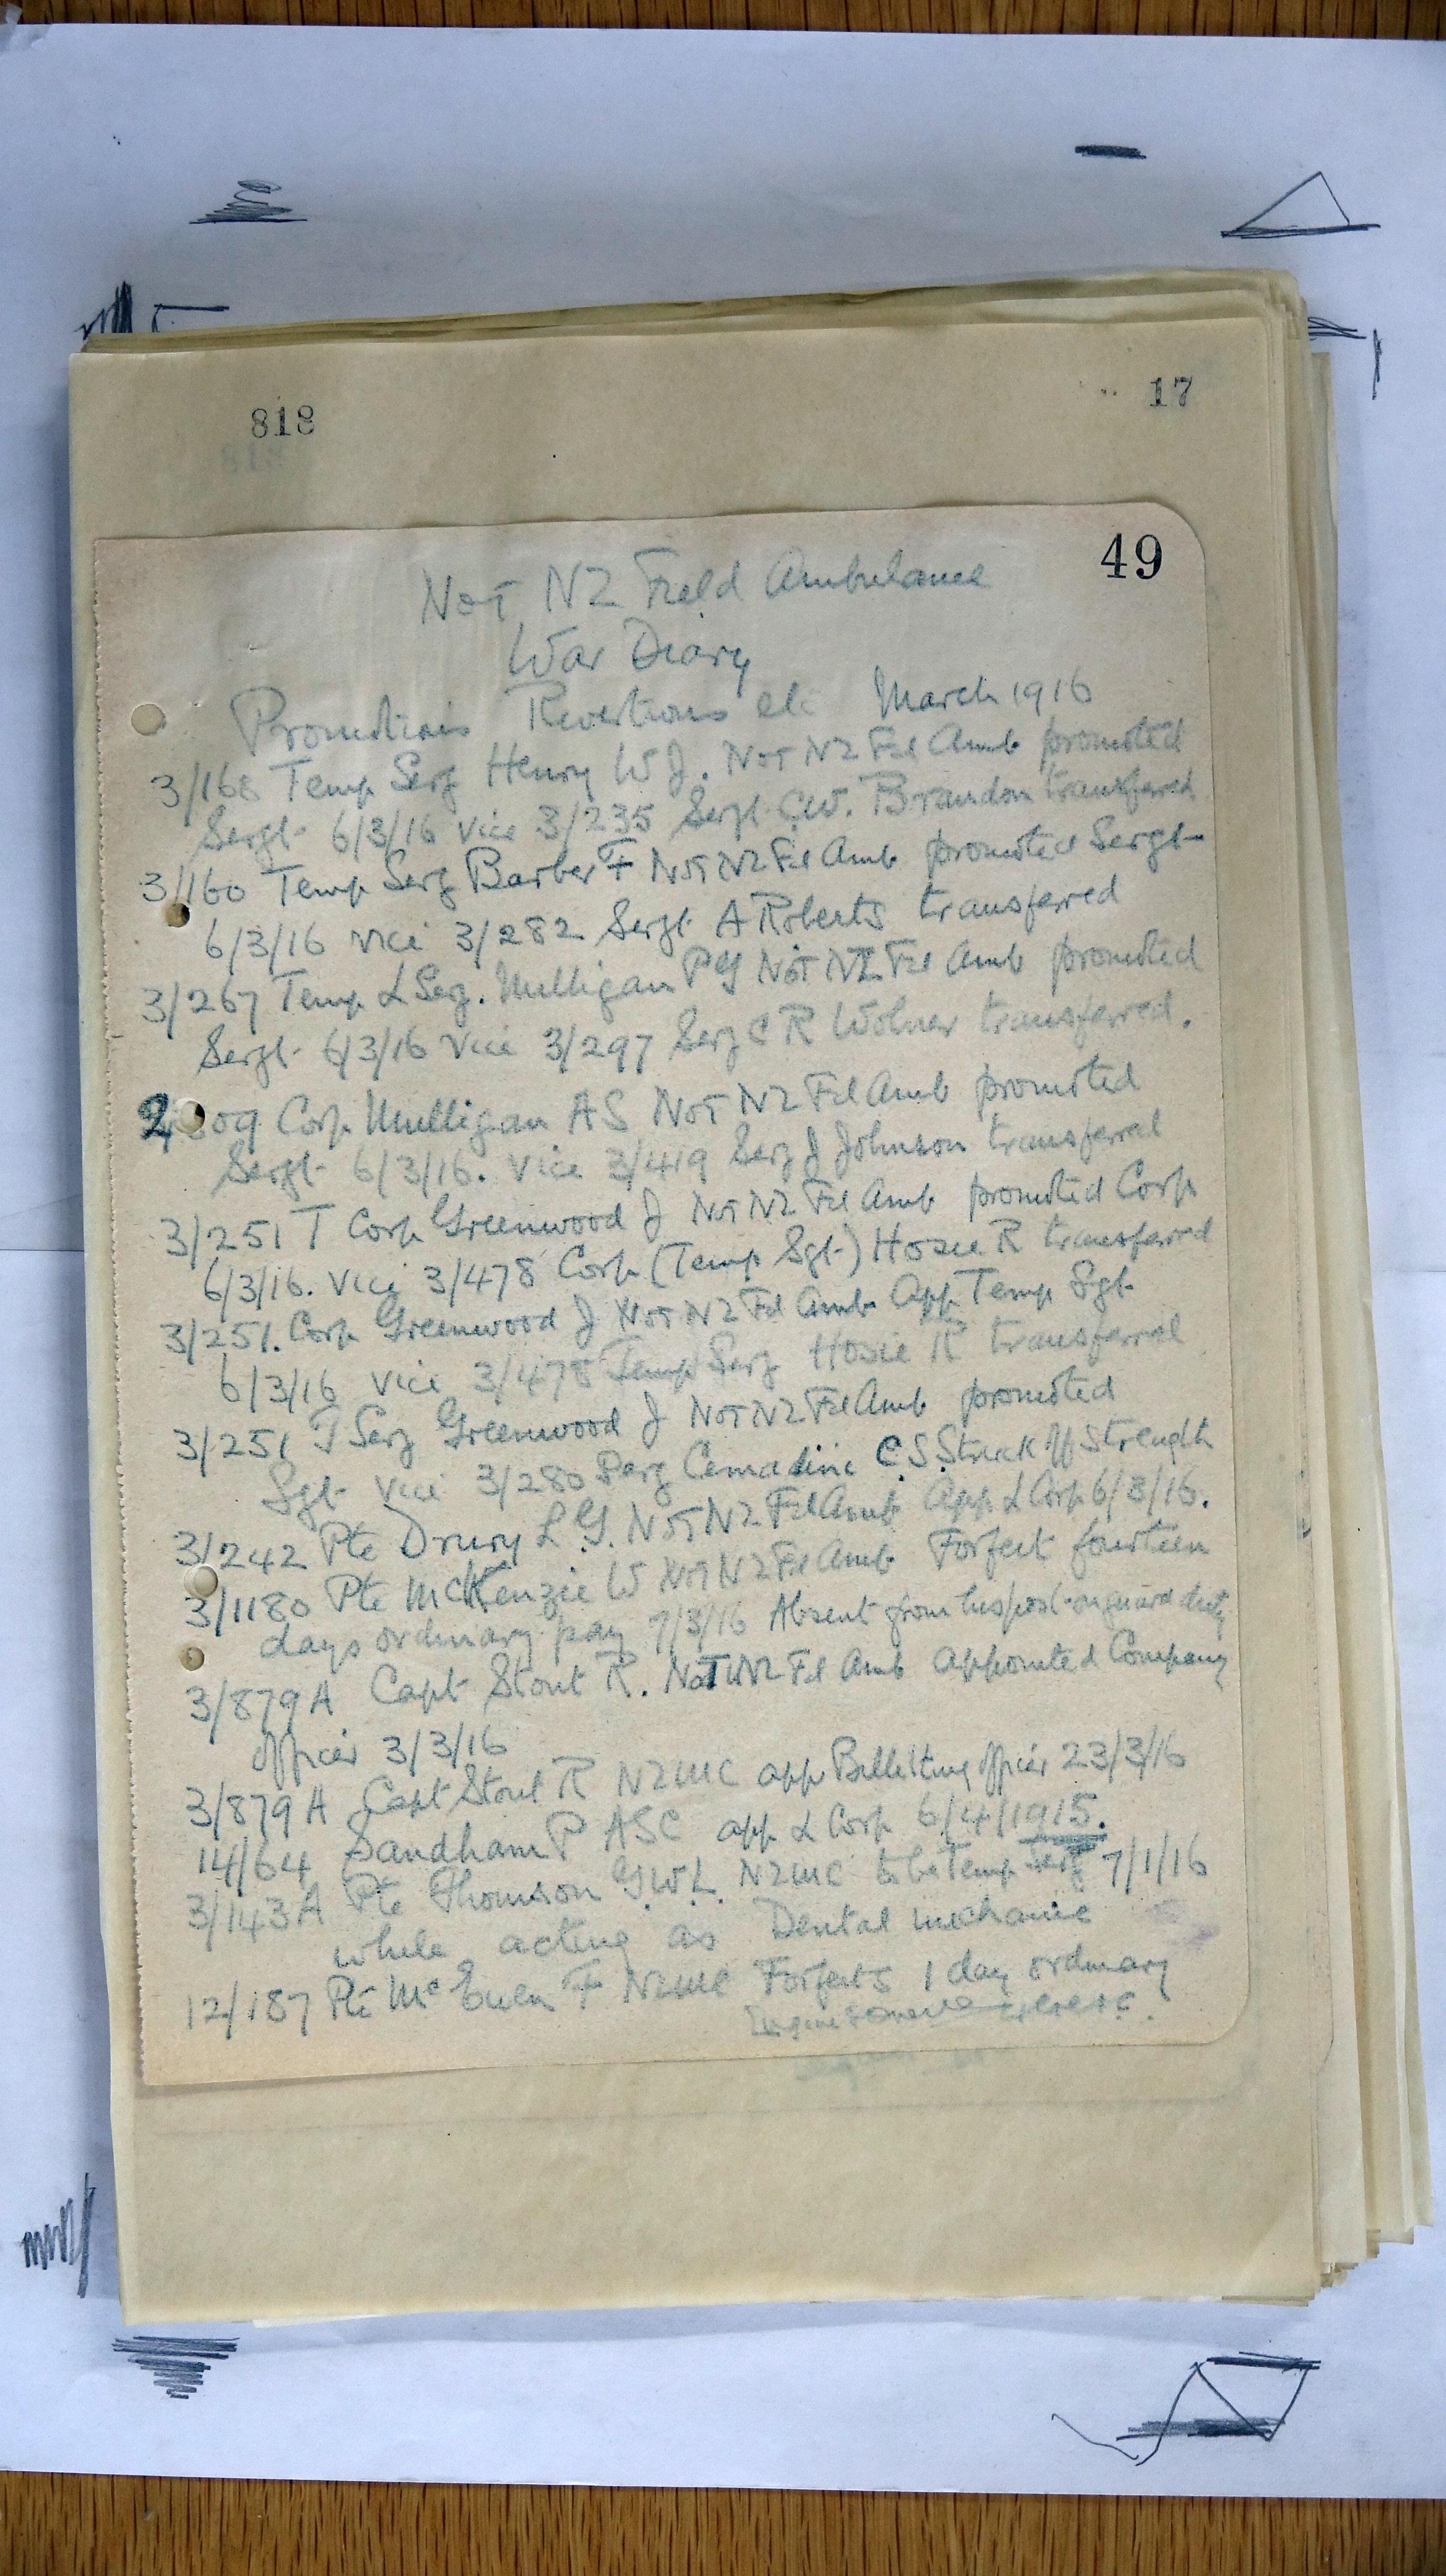 818
17
49
No 1 NZ Field Ambulance
War Diary
Promotions Revertions etc March 1916
3/168 Temp Serg Henry W J. No 1 NZ Fd Amb promoted
Sergt 6/3/16 vice 3/235 Sergt C.W. Brandon transferred
3/160 Temp Serg Barber F No 1 NZ Fd Amb promoted Sergt
6/3/16 vice 3/282 Sergt A Roberts transferred
3/267 Temp L Serg. Mulligan P G No 1 NZ Fd Amb promoted
Sergt 6/3/16 vice 3/297 Serg C R Wolner transferred.
Corp Mulligan A S No 1 NZ Fd Amb promoted
Sergt 6/3/16. vice 3/419 Serg J Johnson transferred
3/251 T Corp Greenwood J No 1 NZ Fd Amb promoted Corp
6/3/16. vice 3/478 Corp (Temp Sgt) Hosie R transferred
3/251. Corp Greenwood J No 1 NZ Fd Amb App Temp Sgt
6/3/16 vice 3/478 Temp Serg Hosie R transferred
3/251 T Serg Greenwood J No 1 NZ Fd Amb promoted
Sgt vice 3/280 Serg C.S. Struck off Strength
3/242 Pte Drury L G. No 1 NZ Fd Amb App L Corp 6/3/16.
3/1180 Pte McKenzie W No 1 NZ Fd Amb Forfeit fourteen
days ordinary pay 7/3/16 Absent from his post on guard duty
3/879A Capt Stout R. No 1 NZ Fd Amb appointed Company
officer 3/3/16
3/879A Capt Stout R NZMC app Billeting officer 23/3/16
14/64 Sandham P ASC app L Corp 6/4/1915.
3/143A Pte Thomson G.W.L. NZMC to be Temp Serg 7/1/16
while acting as Dental mechanic
12/187 Pte McEwen F NZMC Forfeits 1 day ordinary